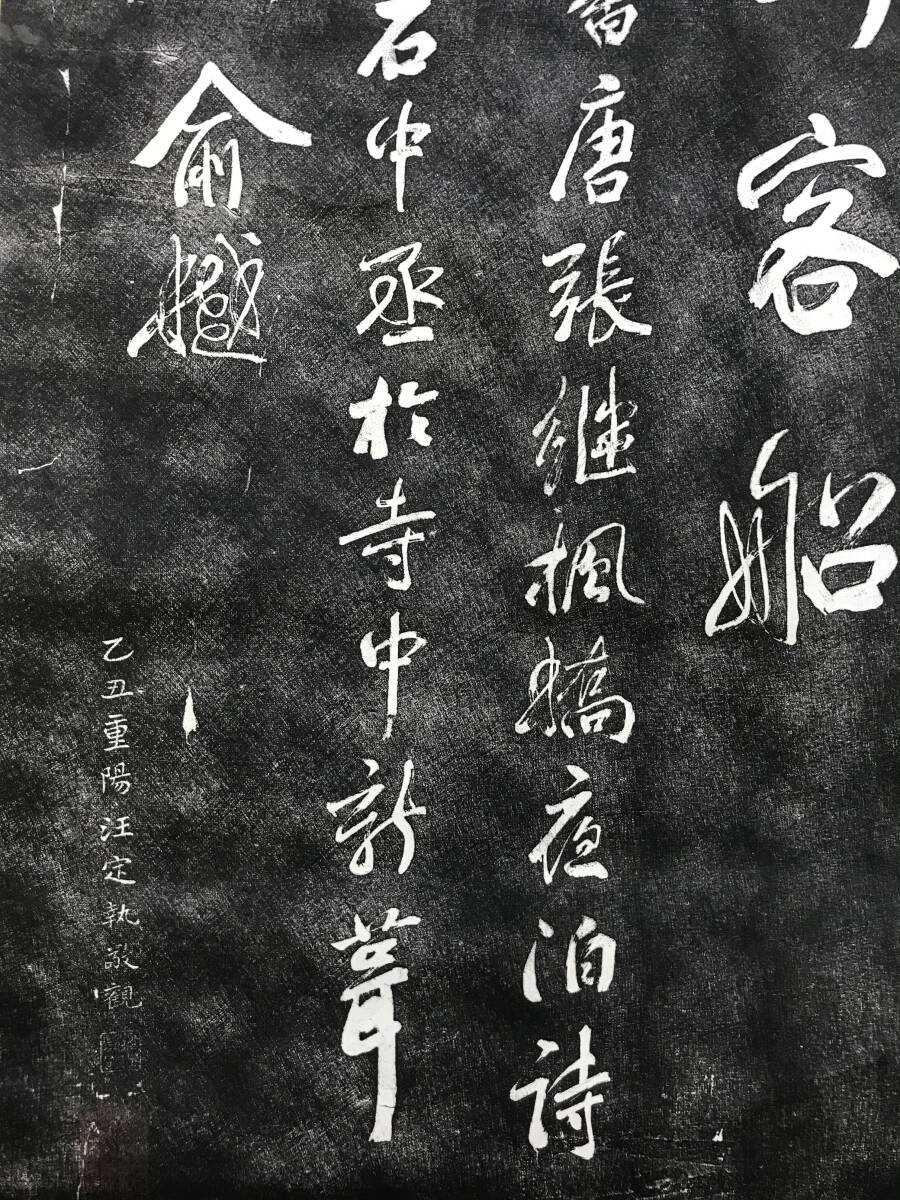 客船
唐張繼楓橋夜泊詩
石中丞於寺中新葺
俞樾
乙丑重陽汪定執敬觀